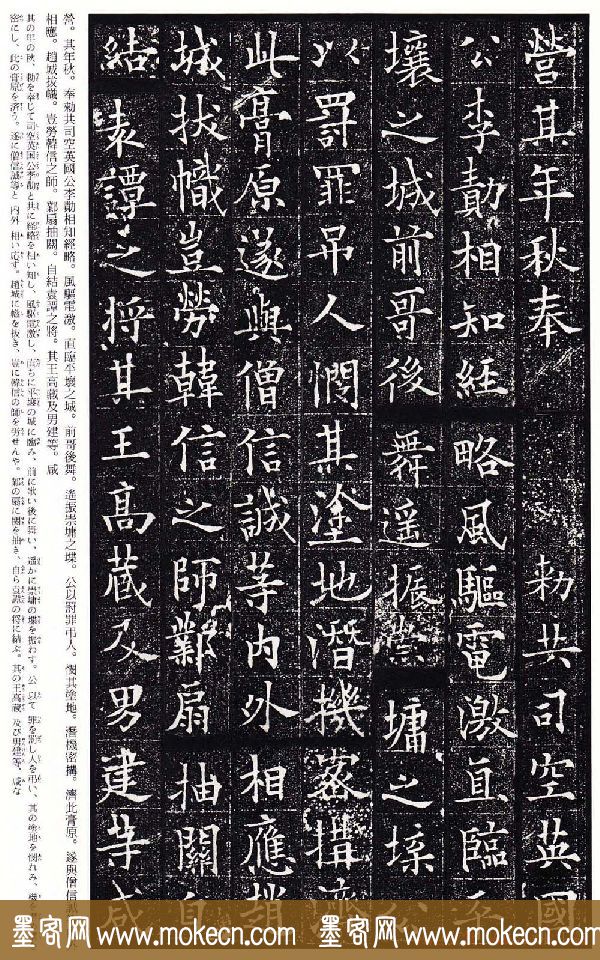 營其年秋奉勅共司空英國
公李勣相知經略風驅電激直臨平
壤之城前哥後舞遥振崇墉之堞
以罸罪吊人憫其塗地潛機密搆濟
此膏原遂與僧信誠等内外相應趙
城拔幟豈勞韓信之師鄴扇抽關自
結袁譚之将其王高藏及男建等咸
營。其年秋。奉勅共司空英國公李勣相知經略。風驅電激。直臨平壤之城。前哥後舞。遙振崇墉之堞。公以罸罪弔人。憫其塗地。潛機密搆。濟此膏原。遂與僧信
相應。趙城拔幟。豈勞韓信之師。鄴扇抽關。自結袁譚之將。其王高藏及男建等。咸
其の年の秋、勅を奉じて司空英国公李勣と共に経略を相い知し、風駆電激し、直ちに平壌の城に臨み、前に歌い後に舞い、遥かに崇墉の堞を振わす。公 以て罪を罸し人を弔い、其の塗地を憫れみ、機
密にし、此の膏原を済う。遂に僧信誠等と 内外 相い応ず。趙城に幟を抜き、豈に韓信の師を労せんや。鄴の扇に関を抽き、自ら袁譚の将に結ぶ。其の王高蔵 及び男建等、咸な
墨客网 www.mokecn.com 墨客网 www.mokecn.com